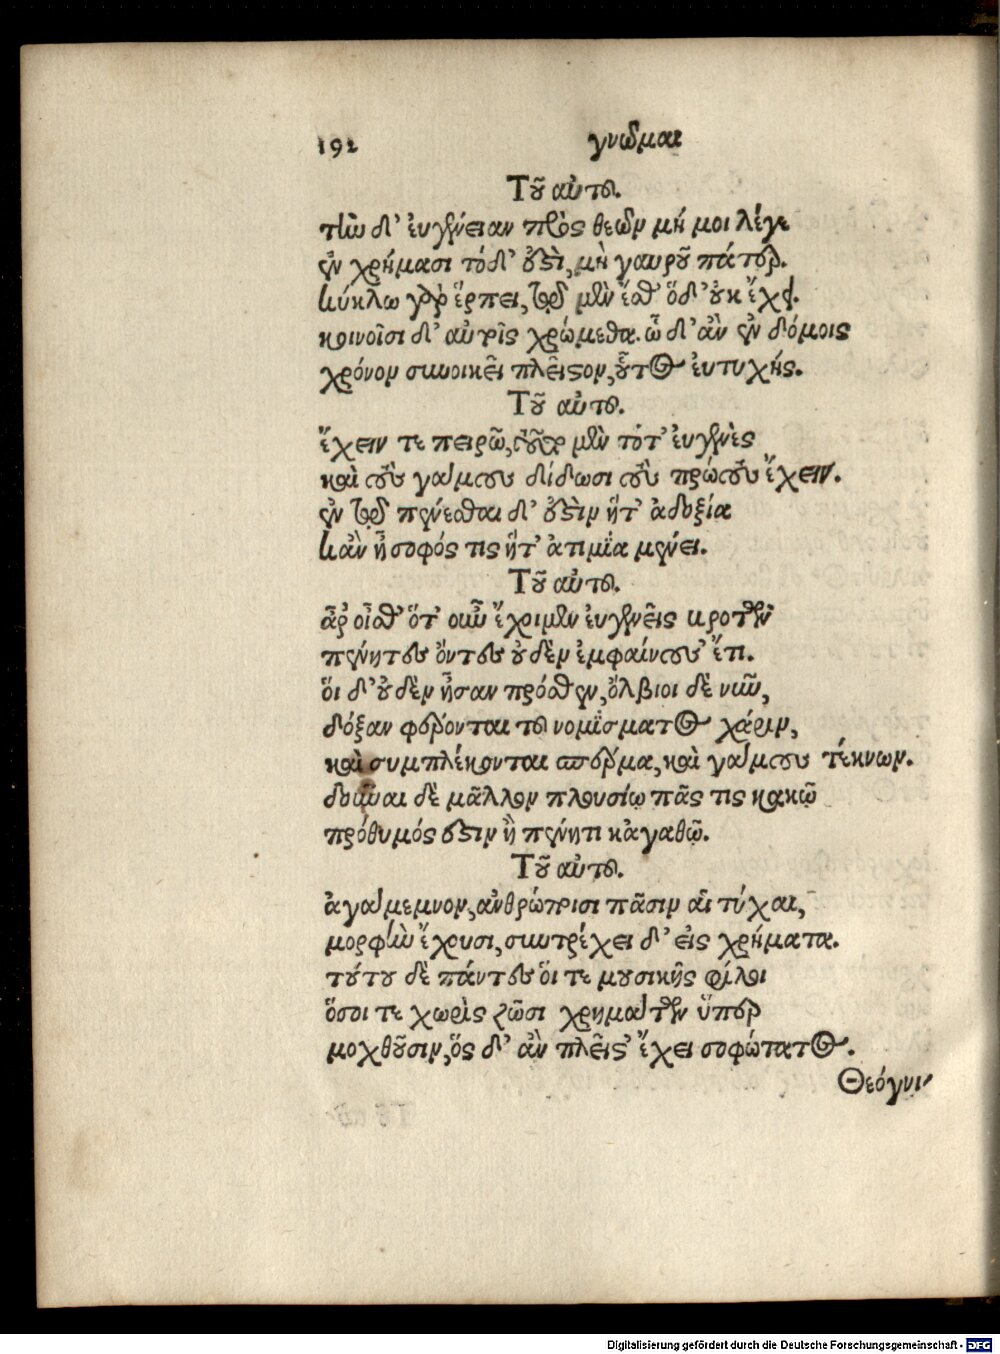 192 γνῶμαι
Τοῦ αὐτοῦ.
τὴν δ' ἐυγένειαν πρὸς θεῶν μή μοι λέγε
ἐν χρήμασι τόδ' ἐστὶ, μὴ γαυροῦ πάτερ.
κύκλω γὰρ ἕρπει, τῷ μὲν ἔσθ' ὅδ' οὐκ ἔχει.
κοινοῖσι δ' αὐτοῖς χρώμεθα. ᾧ δ' ἀν ἐν δόμοις
χρόνον συνοικεῖ πλεῖστον, οὗτος ἐυτυχής.
Τοῦ αὐτοῦ.
ἔχειν τε πειρῶ, τοῦτο μὲν τότ' ἐυγενὲς
καὶ τοὺς γάμους δίδωσι τοὺς πρώτους ἔχειν.
ἐν τῷ πένεσθαι δ' ἐστὶν ἥτ' ἀδοξία
κἀν ᾖ σοφός τις ἥτ' ἀτιμία μένει.
Τοῦ αὐτοῦ.
ἆρ' οἶσθ' ὅτ' οὓς ἔχοιμεν ἐυγενεῖς βροτῶν
πένητες ὄντες οὐδὲν ἐμφαίνους' ἔτι.
ὅι δ' οὐδὲν ἦσαν πρόσθεν, ὄλβιοι δὲ νῦν,
δόξαν φέρονται τοῦ νομίσματος χάριν,
καὶ συμπλέκονται σπέρμα, καὶ γάμους τέκνων.
δοῦναι δὲ μᾶλλον πλουσίῳ πᾶς τις κακῷ
πρόθυμός ἐστιν ἢ πένητι κἀγαθῷ.
Τοῦ αὐτοῦ.
ἀγάμεμνον, ἀνθρώποισι πᾶσιν αἱ τύχαι,
μορφὴν ἔχουσι, συντρέχει δ' εἰς χρήματα.
τούτου δὲ πάντες ὅι τε μουσικῆς φίλοι
ὅσοι τε χωρὶς ζῶσι χρημάτων ὕπερ
μοχθοῦσιν, ὅς δ' ἀν πλεῖς' ἔχει σοφώτατος.
Θεόγνι-
Digitalisierung gefördert durch die Deutsche Forschungsgemeinschaft - DFG